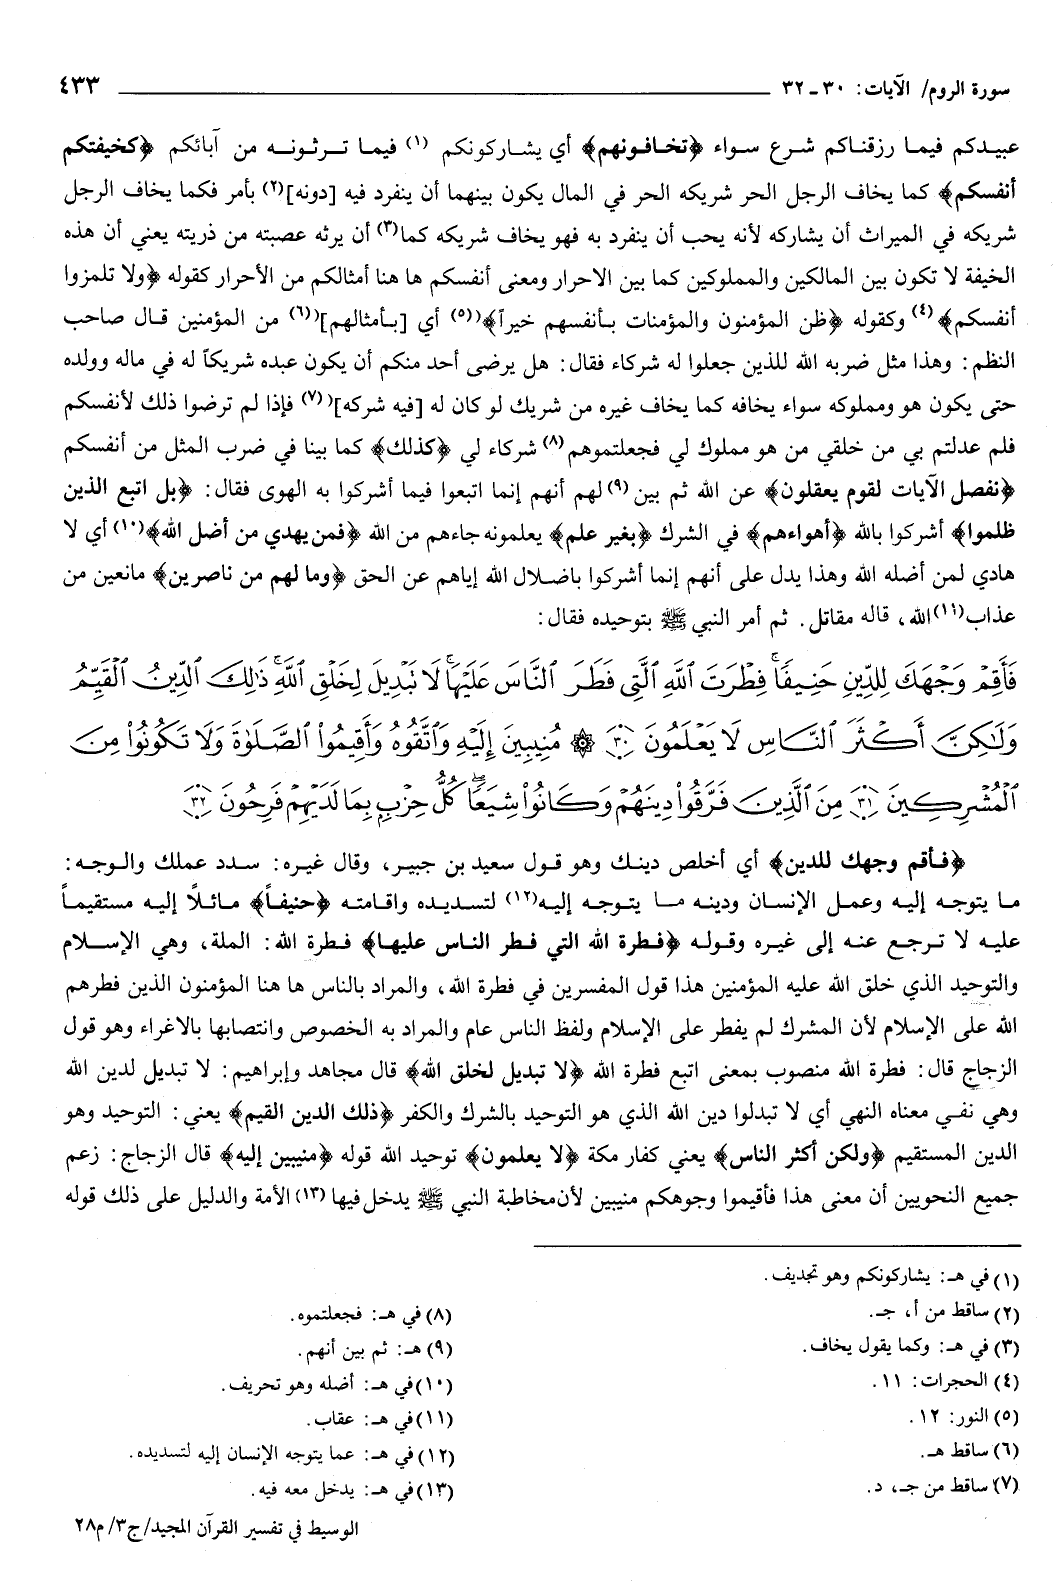 سورة الروم/ الآيات: ٣٠ ـ ٣٢ ٤٣٣
عبيدكم فيما رزقناكم شرع سواء ﴿تخافونهم﴾ أي يشاركونكم (١) فيما ترثونه من آبائكم ﴿كخيفتكم
أنفسكم﴾ كما يخاف الرجل الحر شريكه الحر في المال يكون بينهما أن ينفرد فيه [دونه](٢) بأمر فكما يخاف الرجل
شريكه في الميراث أن يشاركه لأنه يحب أن ينفرد به فهو يخاف شريكه كما(٣) أن يرثه عصبته من ذريته يعني أن هذه
الخيفة لا تكون بين المالكين والمملوكين كما بين الاحرار ومعنى أنفسكم ها هنا أمثالكم من الأحرار كقوله ﴿ولا تلمزوا
أنفسكم﴾(٤) وكقوله ﴿ظن المؤمنون والمؤمنات بأنفسهم خيراً﴾(٥) أي [بأمثالهم](٦) من المؤمنين قال صاحب
النظم: وهذا مثل ضربه الله للذين جعلوا له شركاء فقال: هل يرضى أحد منكم أن يكون عبده شريكاً له في ماله وولده
حتى يكون هو ومملوكه سواء يخافه كما يخاف غيره من شريك لو كان له [فيه شركه](٧) فإذا لم ترضوا ذلك لأنفسكم
فلم عدلتم بي من خلقي من هو مملوك لي فجعلتموهم(٨) شركاء لي ﴿كذلك﴾ كما بينا في ضرب المثل من أنفسكم
﴿نفصل الآيات لقوم يعقلون﴾ عن الله ثم بين (٩)لهم أنهم إنما اتبعوا فيما أشركوا به الهوى فقال: ﴿بل اتبع الذين
ظلموا﴾ أشركوا بالله ﴿أهواءهم﴾ في الشرك ﴿بغير علم﴾ يعلمونه جاءهم من الله ﴿فمن يهدي من أضل الله﴾(١٠) أي لا
هادي لمن أضله الله وهذا يدل على أنهم إنما أشركوا باضلال الله إياهم عن الحق ﴿وما لهم من ناصرين﴾ مانعين من
عذاب(١١)الله، قاله مقاتل. ثم أمر النبي ﷺ بتوحيده فقال:
فَأَقِمْ وَجْهَكَ لِلدِّينِ حَنِيفًا ۚ فِطْرَتَ ٱللَّهِ ٱلَّتِي فَطَرَ ٱلنَّاسَ عَلَيْهَا ۚ لَا تَبْدِيلَ لِخَلْقِ ٱللَّهِ ۚ ذَٰلِكَ ٱلدِّينُ ٱلْقَيِّمُ
وَلَٰكِنَّ أَكْثَرَ ٱلنَّاسِ لَا يَعْلَمُونَ ﴿٣٠﴾ ۞ مُنِيبِينَ إِلَيْهِ وَٱتَّقُوهُ وَأَقِيمُوا۟ ٱلصَّلَوٰةَ وَلَا تَكُونُوا۟ مِنَ
ٱلْمُشْرِكِينَ ﴿٣١﴾ مِنَ ٱلَّذِينَ فَرَّقُوا۟ دِينَهُمْ وَكَانُوا۟ شِيَعًا ۖ كُلُّ حِزْبٍۭ بِمَا لَدَيْهِمْ فَرِحُونَ ﴿٣٢﴾
﴿فأقم وجهك للدين﴾ أي أخلص دينك وهو قول سعيد بن جبير، وقال غيره: سدد عملك والوجه:
ما يتوجه إليه وعمل الإنسان ودينه ما يتوجه إليه(١٢) لتسديده واقامته ﴿حنيفاً﴾ مائلاً إليه مستقيماً
عليه لا ترجع عنه إلى غيره وقوله ﴿فطرة الله التي فطر الناس عليها﴾ فطرة الله: الملة، وهي الإسلام
والتوحيد الذي خلق الله عليه المؤمنين هذا قول المفسرين في فطرة الله، والمراد بالناس ها هنا المؤمنون الذين فطرهم
الله على الإسلام لأن المشرك لم يفطر على الإسلام ولفظ الناس عام والمراد به الخصوص وانتصابها بالاغراء وهو قول
الزجاج قال: فطرة الله منصوب بمعنى اتبع فطرة الله ﴿لا تبديل لخلق الله﴾ قال مجاهد وإبراهيم: لا تبديل لدين الله
وهي نفي معناه النهي أي لا تبدلوا دين الله الذي هو التوحيد بالشرك والكفر ﴿ذلك الدين القيم﴾ يعني: التوحيد وهو
الدين المستقيم ﴿ولكن أكثر الناس﴾ يعني كفار مكة ﴿لا يعلمون﴾ توحيد الله قوله ﴿منيبين إليه﴾ قال الزجاج: زعم
جميع النحويين أن معنى هذا فأقيموا وجوهكم منيبين لأن مخاطبة النبي ﷺ يدخل فيها (١٣) الأمة والدليل على ذلك قوله
(١) في هـ: يشاركونكم وهو تجديف.
(٢) ساقط من أ، جـ.
(٣) في هـ: وكما يقول يخاف.
(٤) الحجرات: ١١.
(٥) النور: ١٢.
(٦) ساقط هـ.
(٧) ساقط من جـ، د.
(٨) في هـ: فجعلتموه.
(٩) هـ: ثم بين أنهم.
(١٠) في هـ: أضله وهو تحريف.
(١١) في هـ: عقاب.
(١٢) في هـ: عما يتوجه الإنسان إليه لتسديده.
(١٣) في هـ: يدخل معه فيه.
الوسيط في تفسير القرآن المجيد/ ج٣/ م٢٨